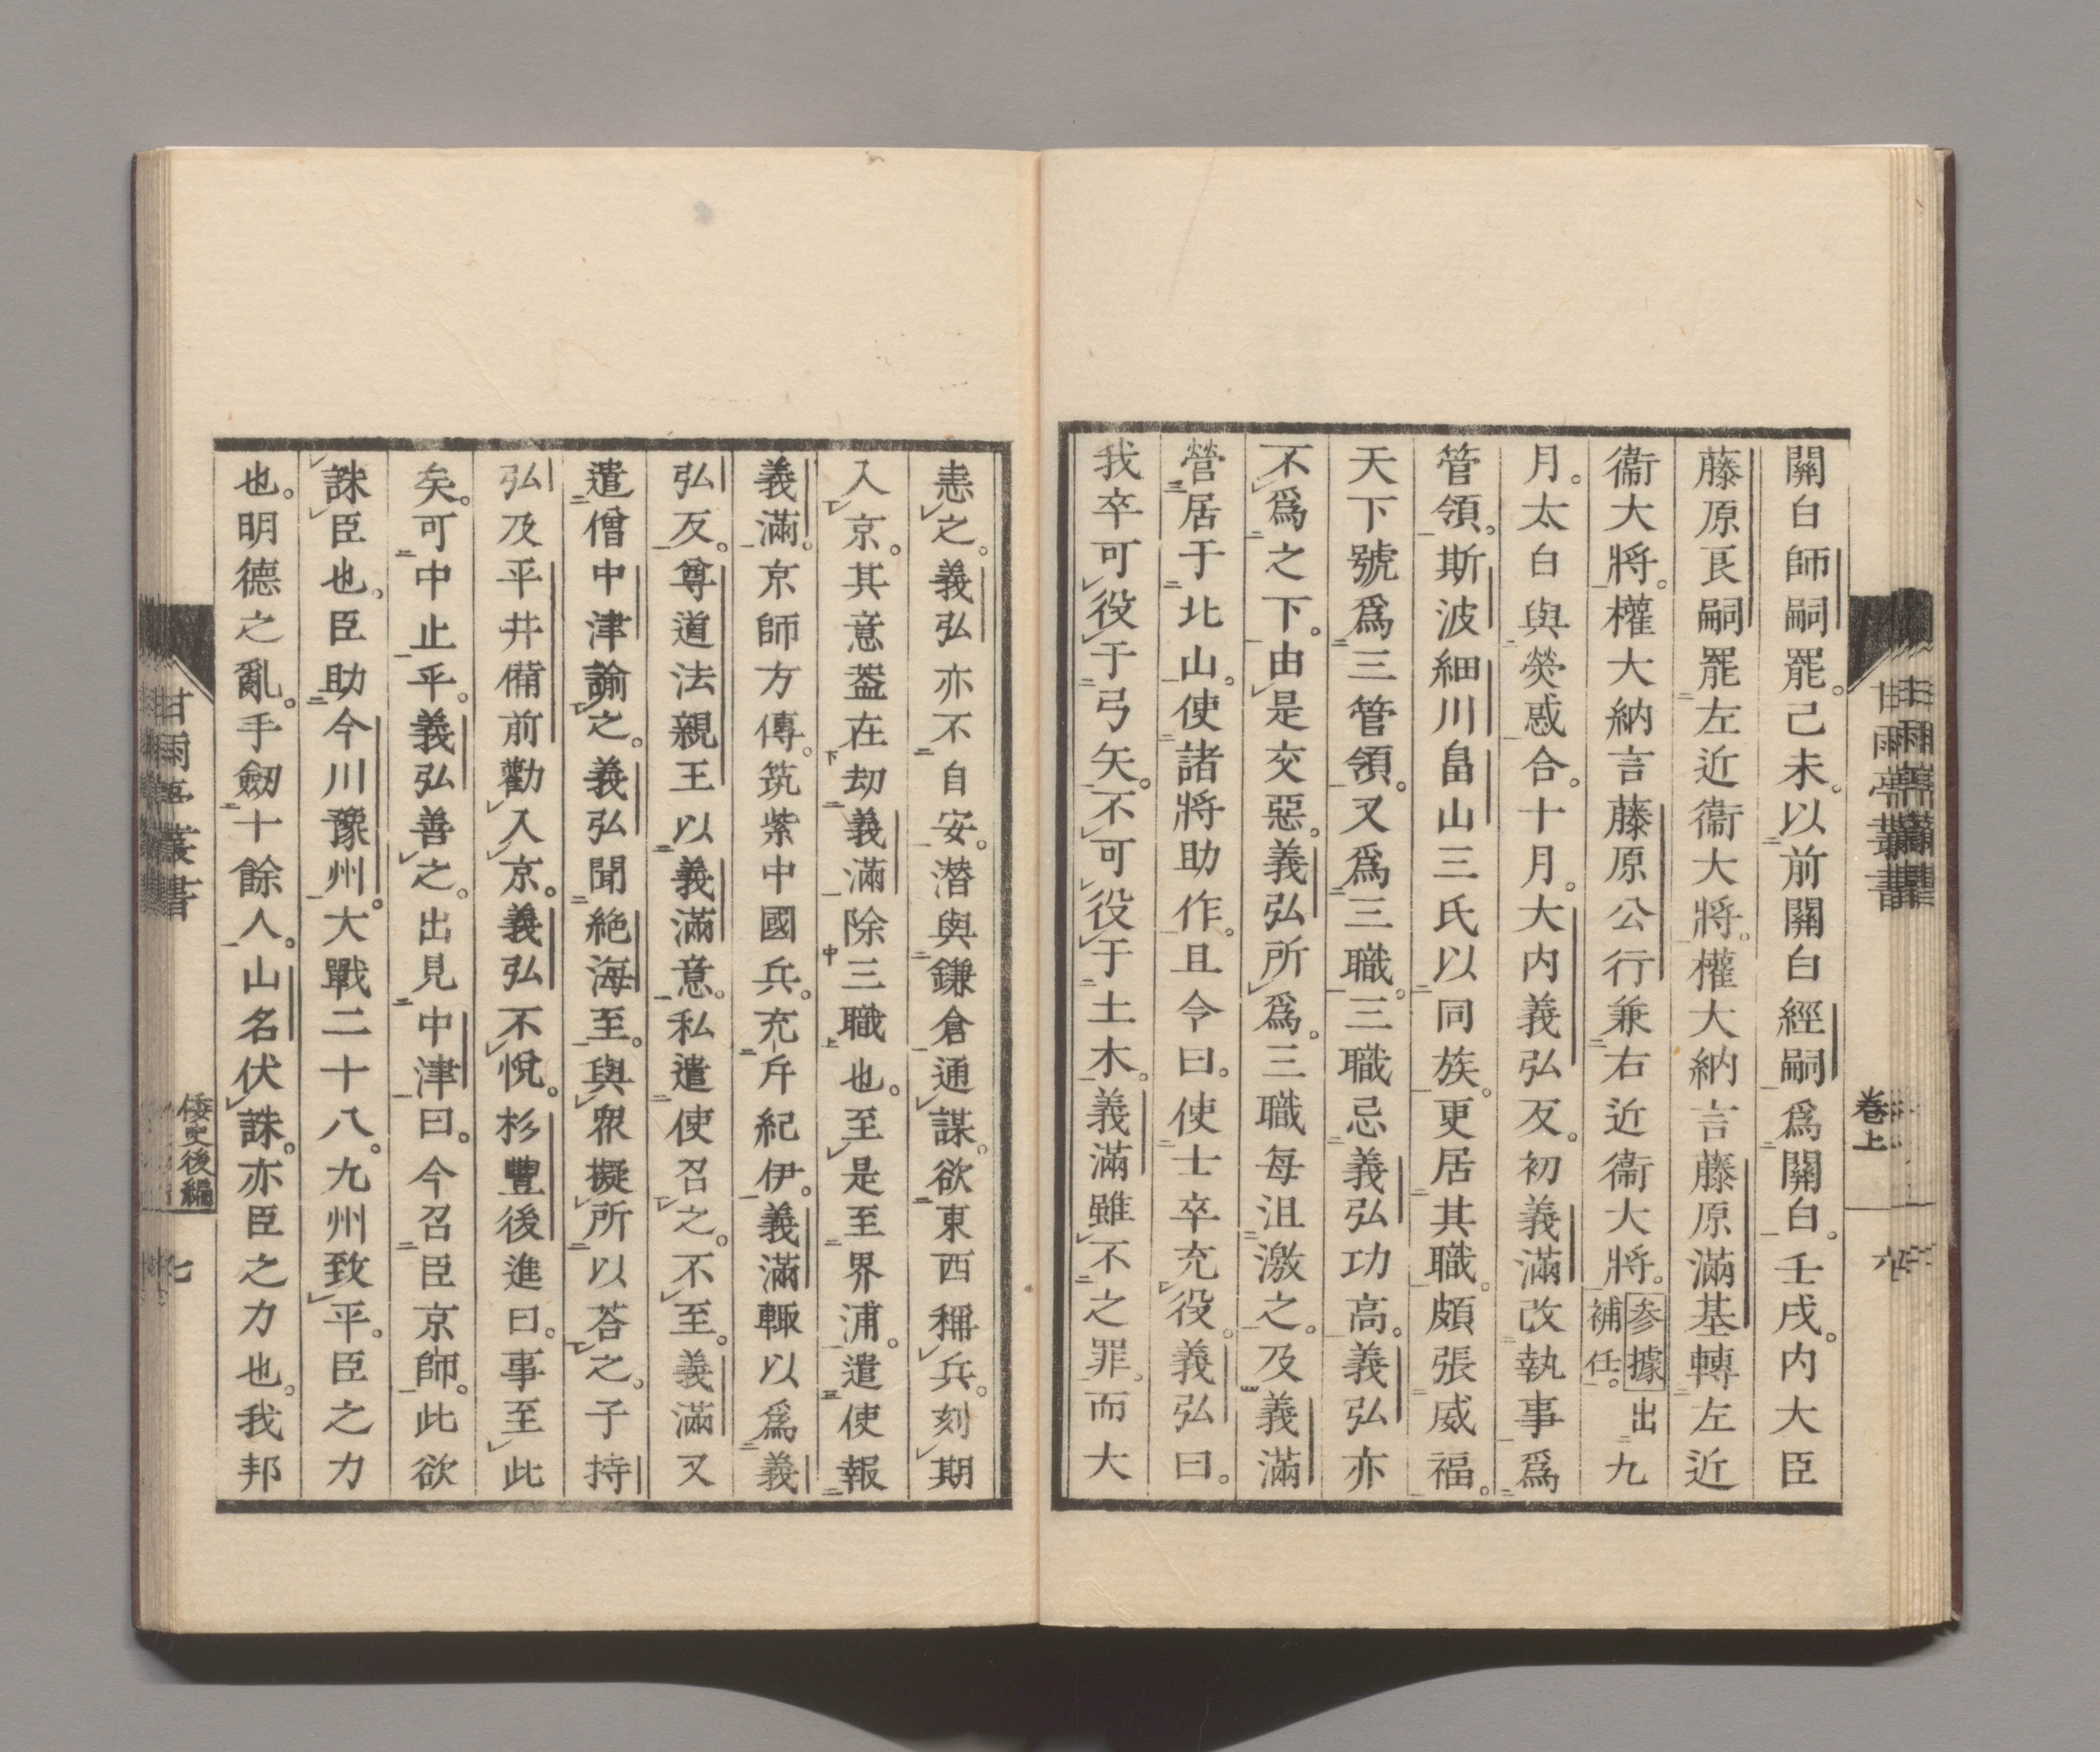 關白師嗣罷。己未。以前關白經嗣爲關白。壬戌。内大臣
藤原良嗣罷左近衞大將。權大納言藤原滿基轉左近
衞大將。權大納言藤原公行兼右近衞大將。参據補任。出九
月。太白與熒惑合。十月。大内義弘反。初義滿改執事爲
管領。斯波細川畠山三氏以同族。更居其職。頗張威福。
天下號爲三管領。又爲三職。三職忌義弘功高。義弘亦
不爲之下。由是交惡。義弘所爲。三職每沮激之。及義滿
營居于北山。使諸將助作。且令曰。使士卒充役。義弘曰。
我卒可役于弓矢。不可役于土木。義滿雖不之罪。而大
恚之。義弘亦不自安。潜與鎌倉通謀。欲東西稱兵。刻期
入京。其意葢在刧義滿除三職也。至是至界浦。遣使報
義滿。京師方傳。筑紫中國兵。充斥紀伊。義滿輙以爲義
弘反。尊道法親王以義滿意。私遣使召之。不至。義滿又
遣僧中津諭之。義弘聞絶海至。與衆擬所以荅之。子持
弘及平井備前勸入京。義弘不悅。杉豐後進曰。事至此
矣。可中止乎。義弘善之。出見中津曰。今召臣京師。此欲
誅臣也。臣助今川豫州。大戰二十八。九州致平。臣之力
也。明德之亂。手劔十餘人。山名伏誅。亦臣之力也。我邦
甘雨亭叢書
卷上
六
甘雨亭叢書
倭史後編
七